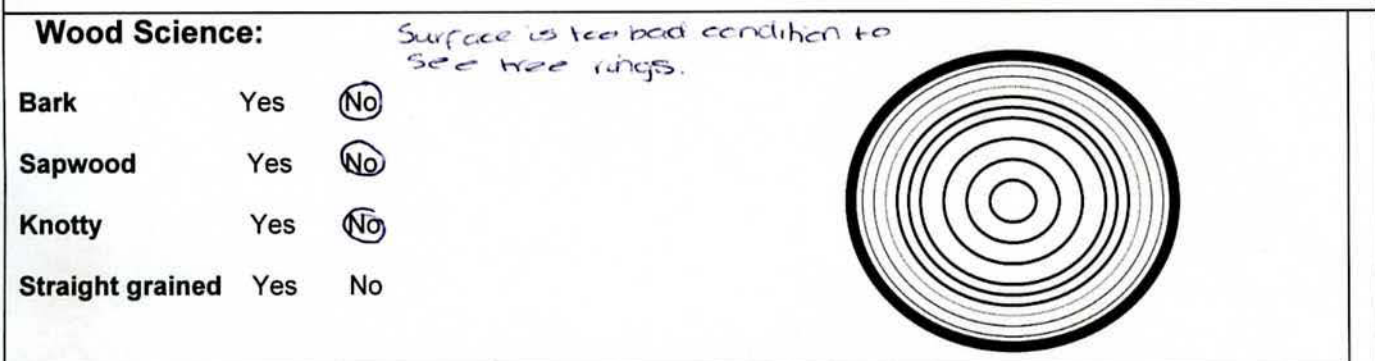 Wood Science:
Surface is too bad condition to
see tree rings.
Bark Yes No
Sapwood Yes No
Knotty Yes No
Straight grained Yes No